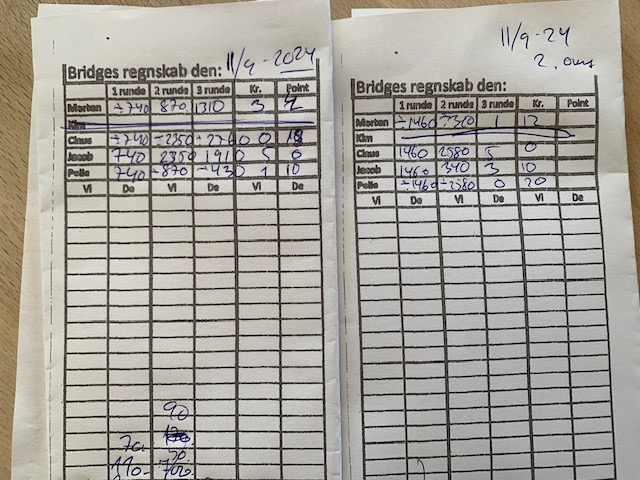 Bridges regnskab den: 11/9-2024
1 runde 2 runde 3 runde Kr. Point
Morten ÷740 870 1310 3 4
Kim
Cinus ÷740 ÷2350 ÷2760 0 18
Jacob 740 2350 1910 5 0
Pelle 740 ÷870 ÷430 1 10
Vi De Vi De Vi De
90
70 30
110- 700
11/9-24
Bridges regnskab den:
1 runde 2 runde 3 runde Kr. Point
Morten ÷1460 ÷340 1 13
Kim
Cinus 1460 2580 5 0
Jacob 1460 340 3 10
Pelle ÷1460 ÷2580 0 20
Vi De Vi De Vi De